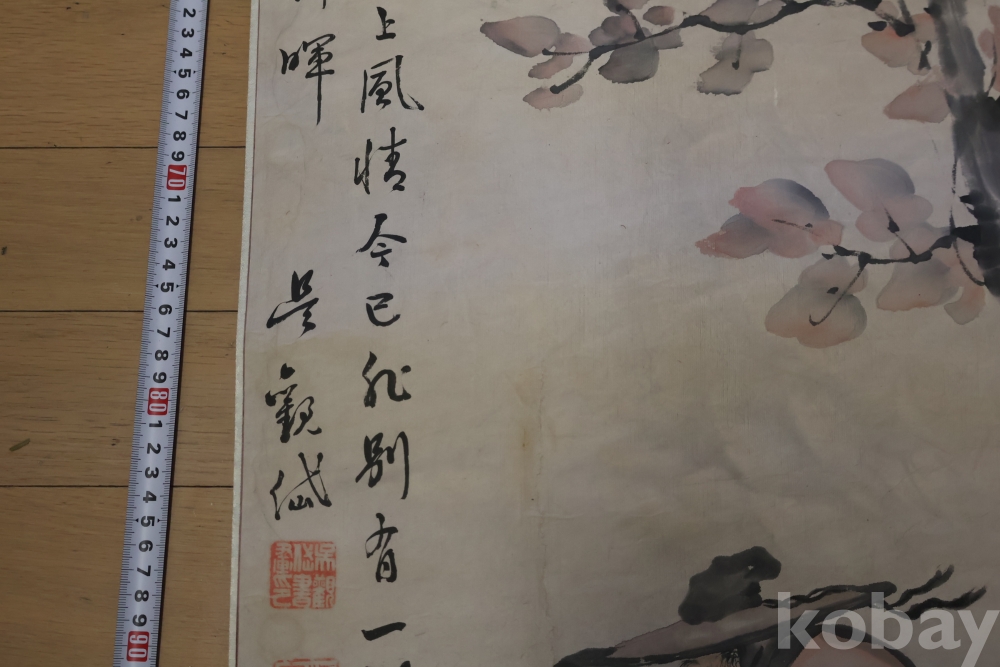 上風情今已非別有一
暉
吳觀岱
吳觀岱書畫印
2 3 4 5 6 7 8 9 70 1 2 3 4 5 6 7 8 9 80 1 2 3 4 5 6 7 8 9 90
kobay